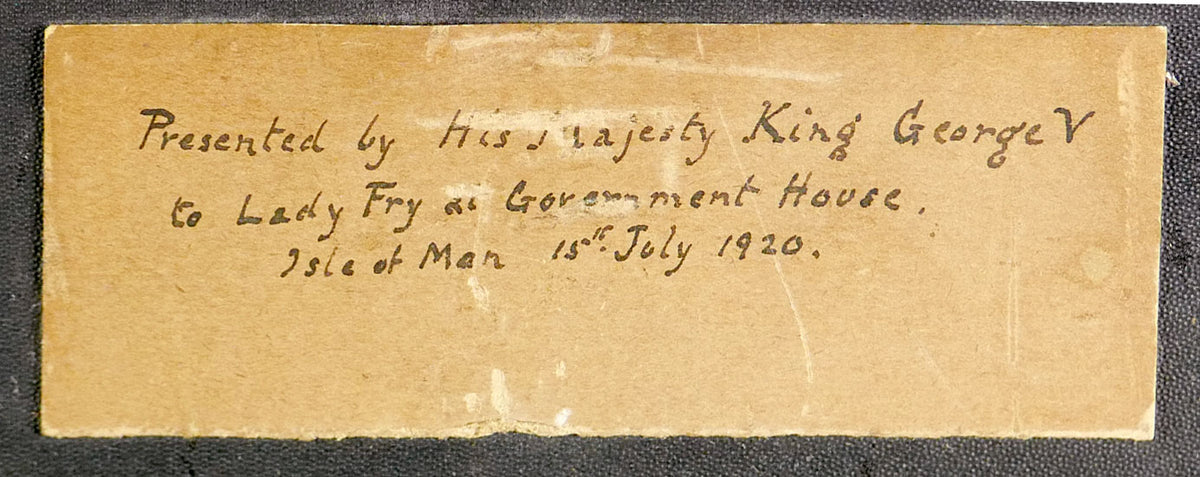 Presented by His Majesty King George V
to Lady Fry at Government House.
Isle of Man 15th July 1920.